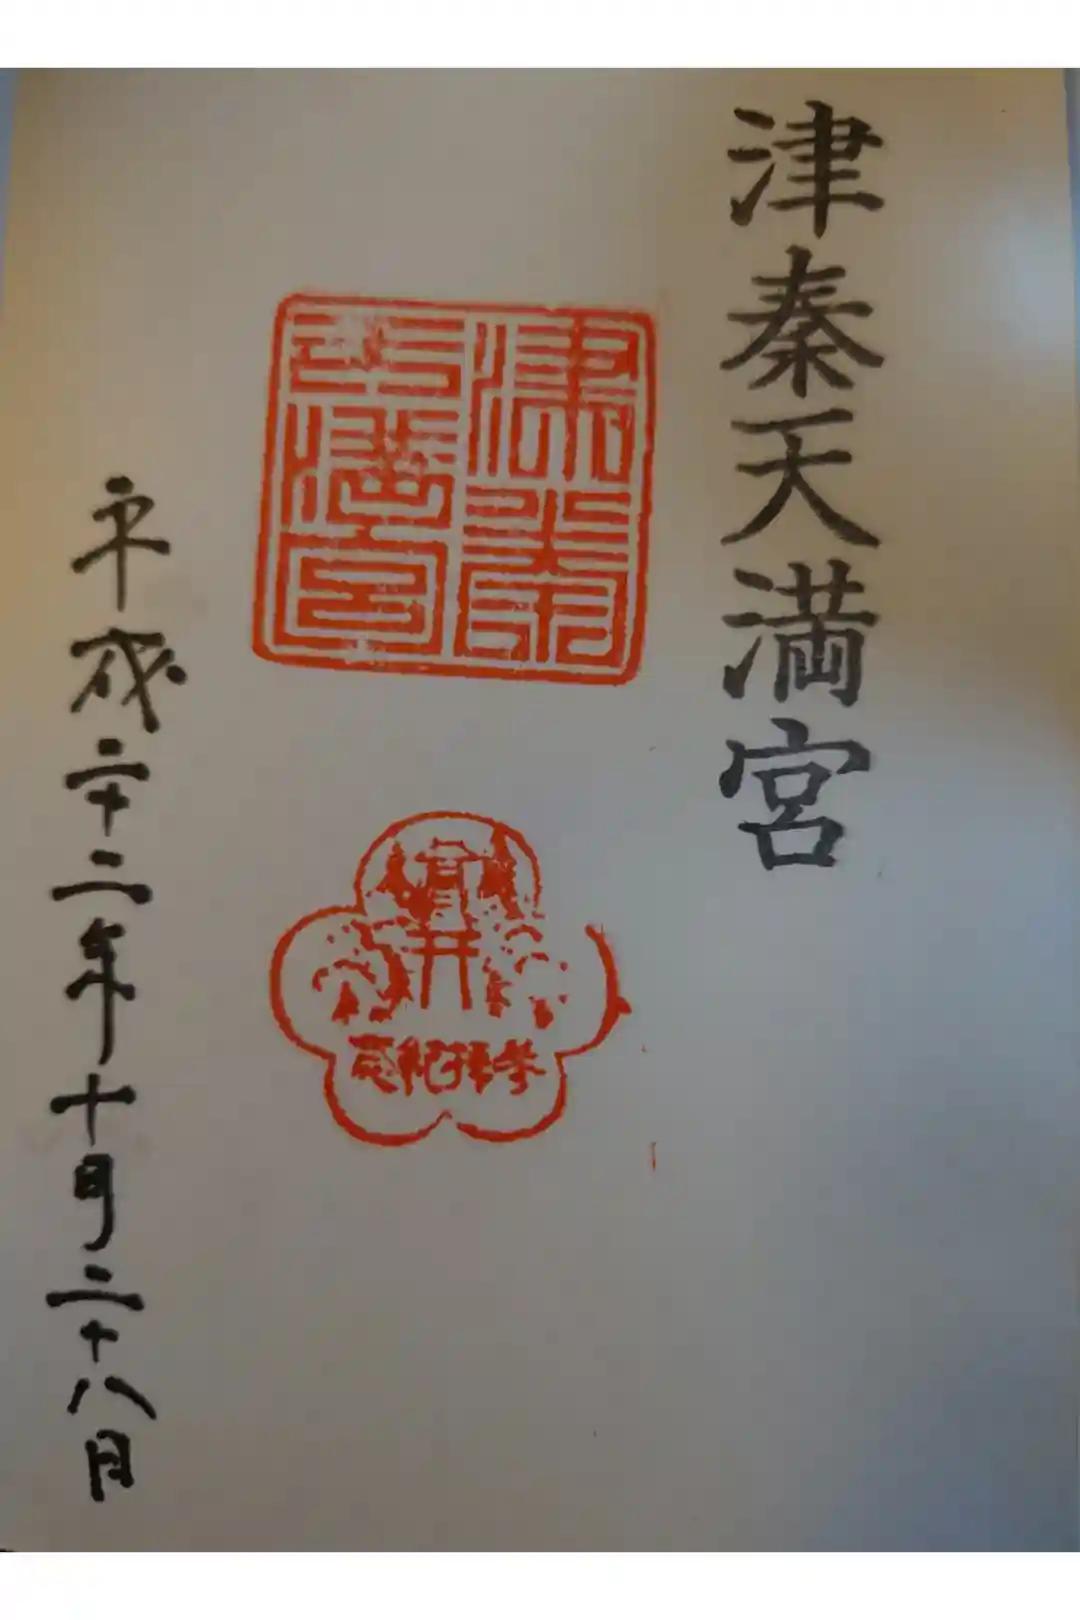 津秦天満宮
津秦
天満宮
参拝紀念
平成二十二年十月二十八日